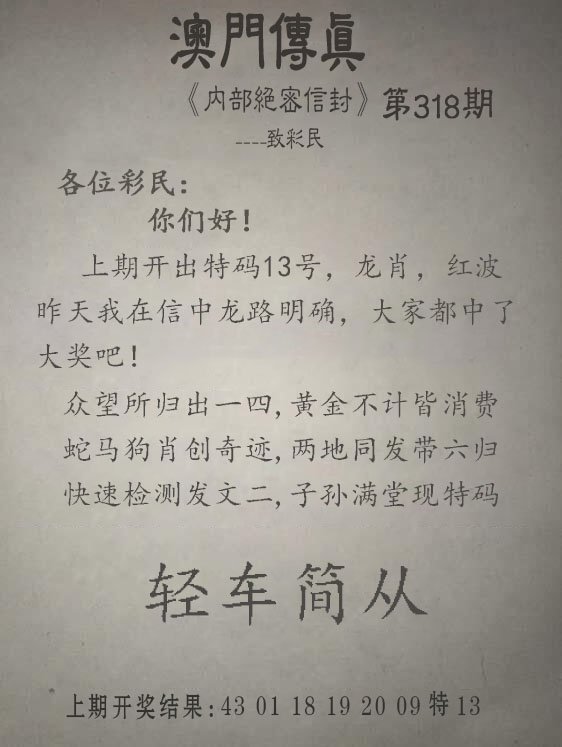 澳門傳眞
《内部絕密信封》第318期
----致彩民
各位彩民：
你们好！
上期开出特码13号，龙肖，红波
昨天我在信中龙路明确，大家都中了
大奖吧！
众望所归出一四,黄金不计皆消费
蛇马狗肖创奇迹,两地同发带六归
快速检测发文二,子孙满堂现特码
轻车简从
上期开奖结果:43 01 18 19 20 09 特 13